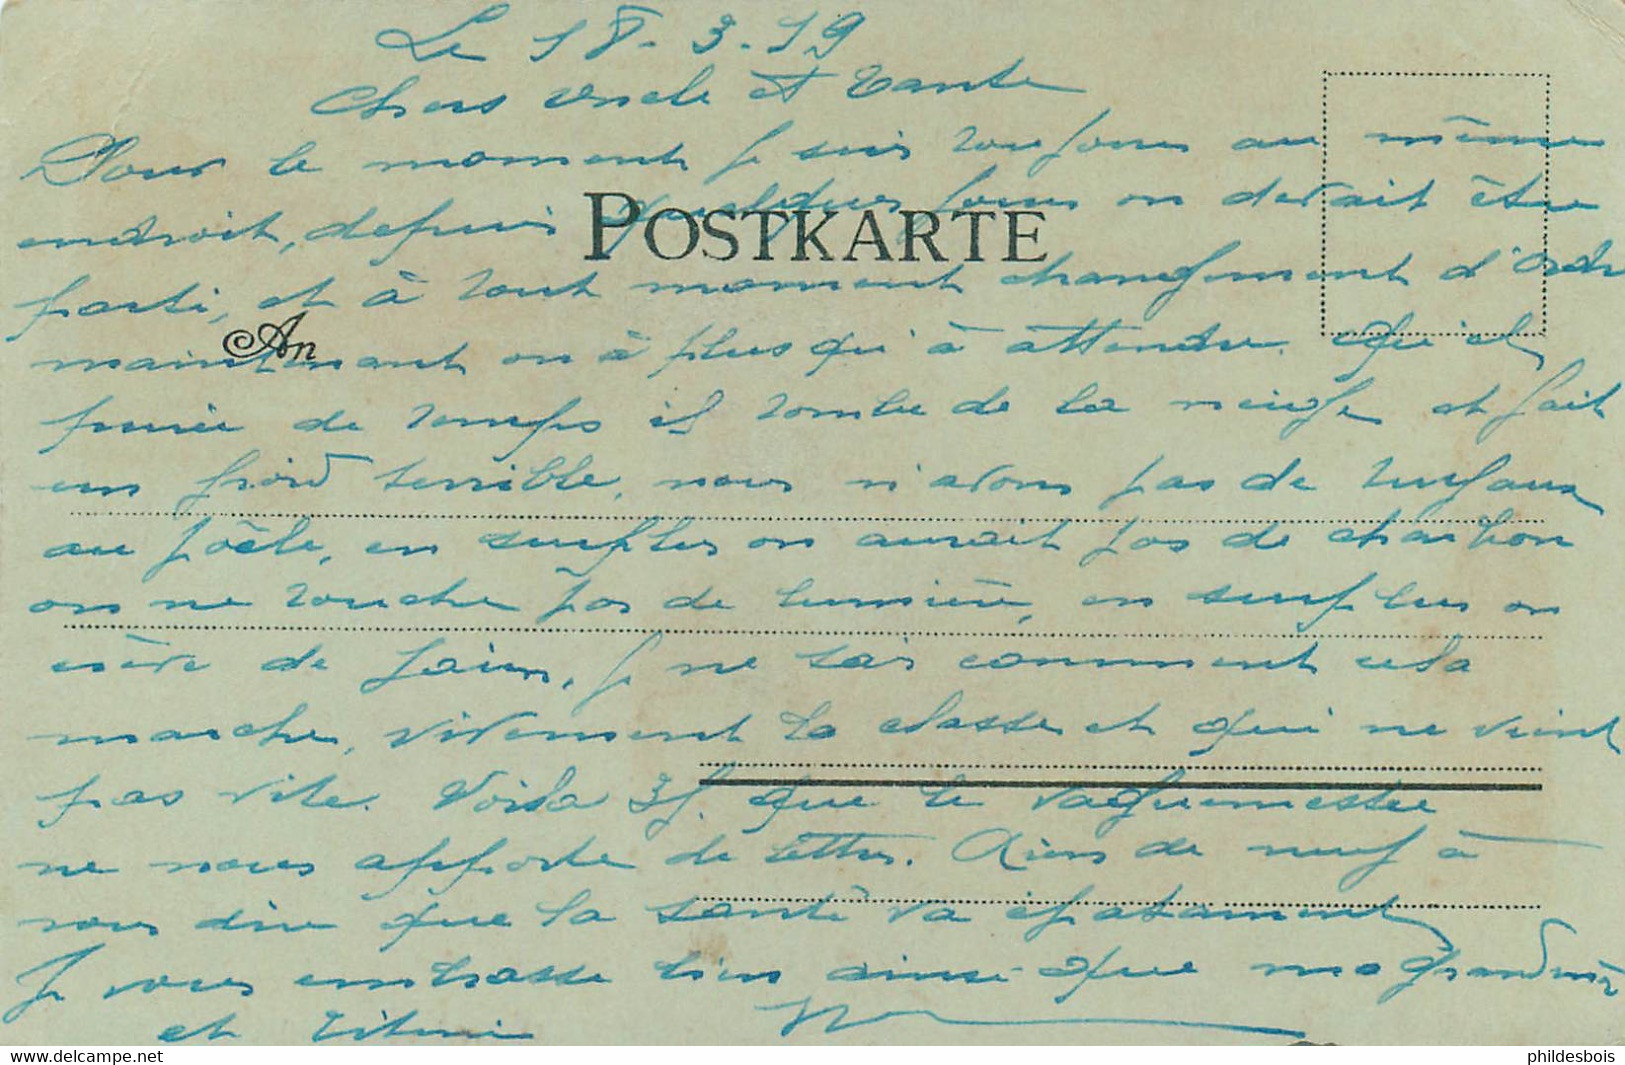 Le 18.3.19
Chers Oncle et Tante
Pour le moment je suis toujours au même
endroit, depuis quelques jours on devait être
POSTKARTE
parti, et à tout moment changement d'ordre
An
maintenant on à plus qu'à attendre. Quel
purée de temps il tombe de la neige et fait
un froid terrible, nous n'avons pas de tuyaux
au poêle, en surplus on aurait pas de charbon
on ne touche pas de lumière, en surplus on
crève de faim, je ne sais comment cela
marche, vivement la classe et qui ne vient
pas vite. Voila 3j. que le vaguemestre
ne nous apporte de lettres. Rien de neuf à
vous dire que la santé va épatament
Je vous embrasse bien ainsi que ma grandmère
et Titine
delcampe.net
phildesbois